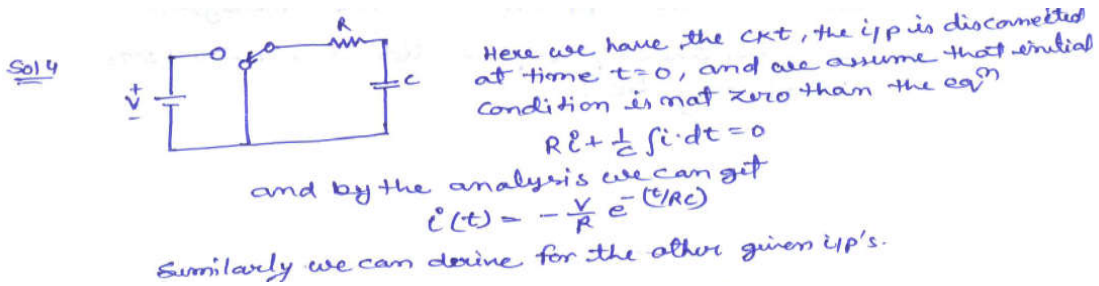 Sol 4
R
+
V
-
C
Here we have the ckt, the i/p is disconnected
at time t=0, and we assume that initial
condition is not zero than the eqn
Ri + 1/c ∫i·dt = 0
and by the analysis we can get
i(t) = - V/R e^-(t/RC)
Sumilarly we can derive for the other given i/p's.